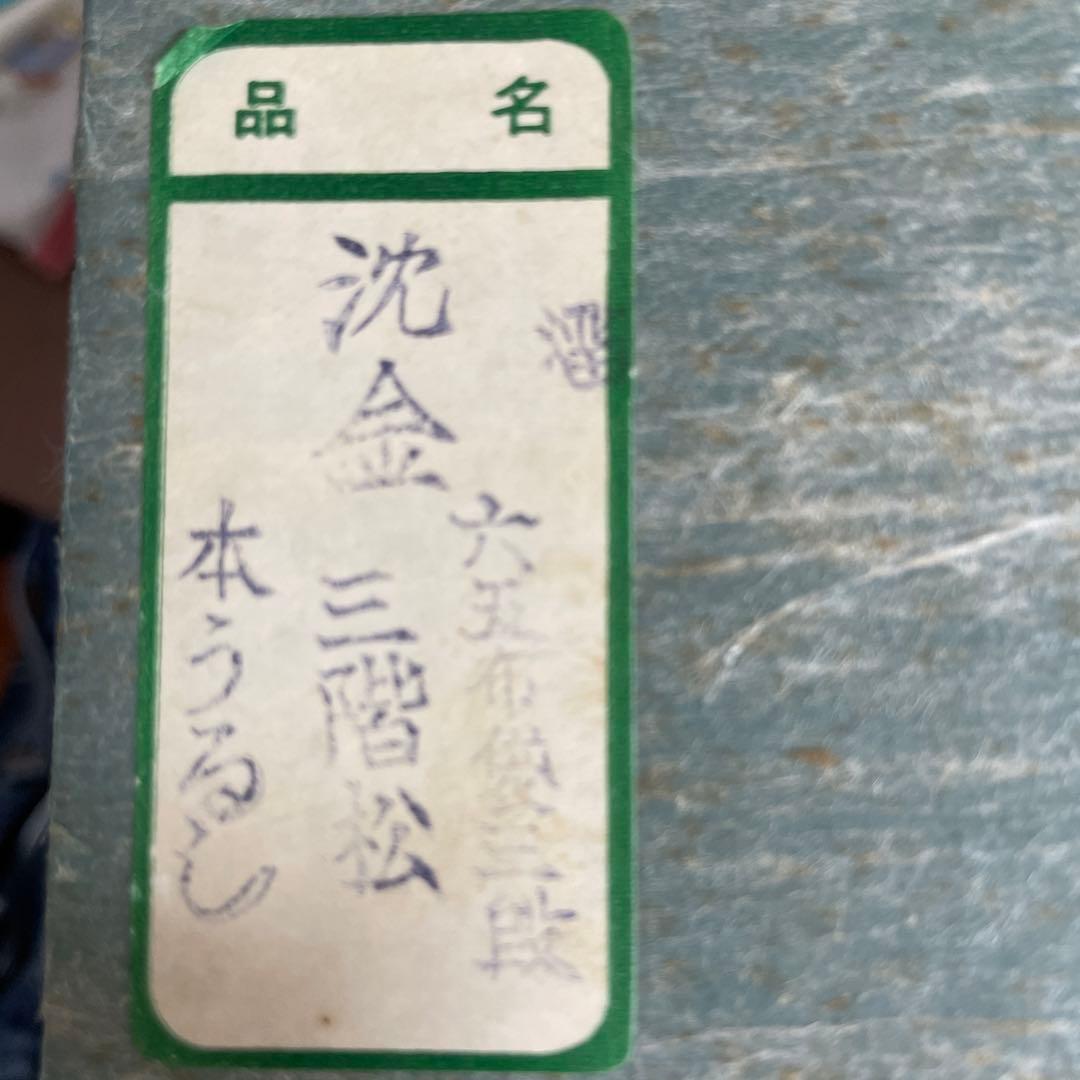 品名
六五布張三段
沈金 三階松
本うるし